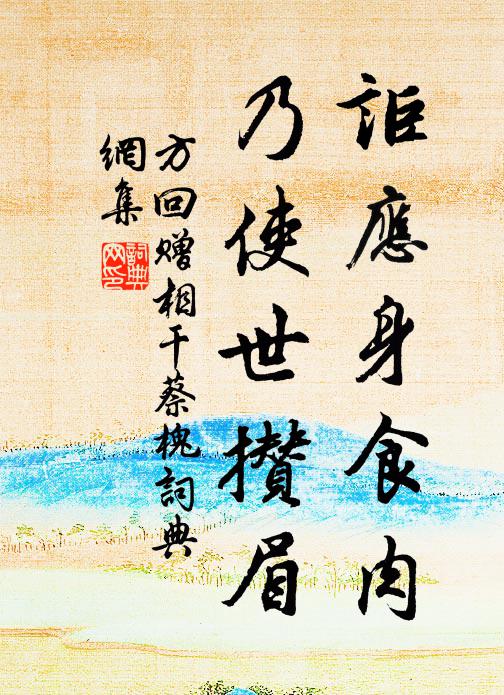 詎應身食肉
乃使世攢眉
方回贈相干蔡槐詞典
網集
詞典
网印